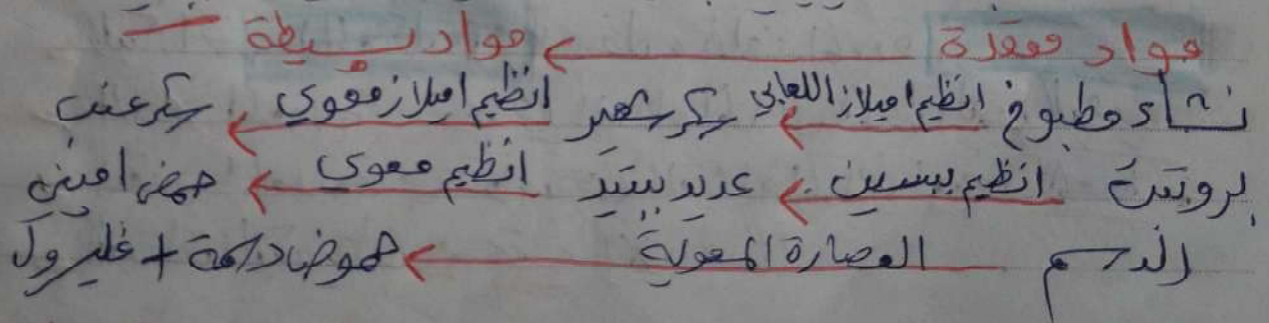 مواد معقدة ← مواد بسيطة
نشاء مطبوخ انظيم اميلاز اللعابي ← سكر شعير انظيم اميلاز معوي ← سكر عنب
بروتين انظيم ببسين ← عديد ببتيد انظيم معوي ← حمض اميني
الدسم العصارة المعوية ← حموض دسمة + غليرول